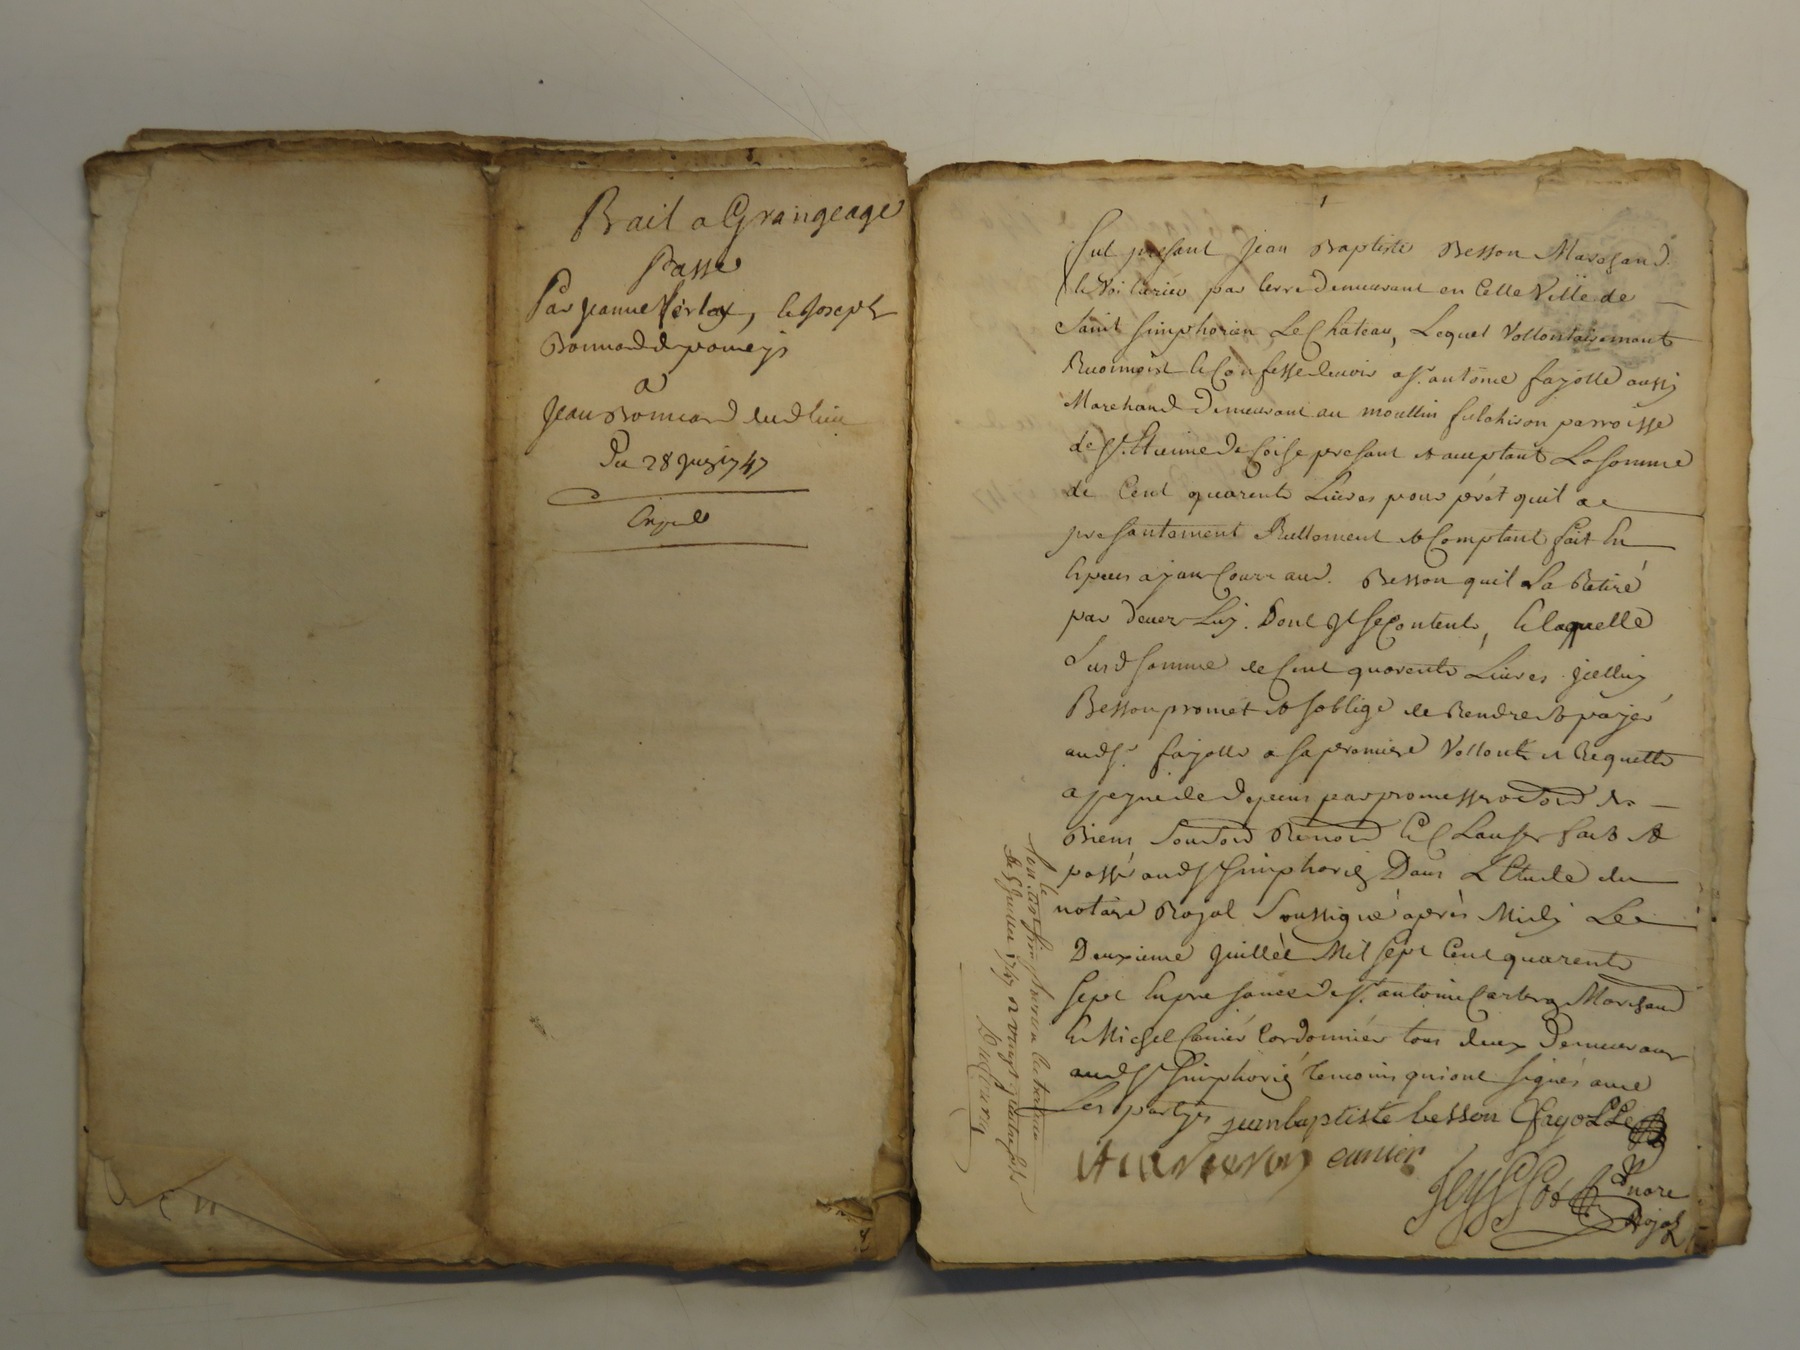 Bail a Grangeage
Passé
Par Jeanne Verlay, & Joseph
Bonnard de pomeys
a
Jean Bonnard dud lieu
Du 28 Juin 1747
Expedié
Fut presant Jean Baptiste Besson Marchand
& Voiturier par terre Demeurant en Cette Ville de
Saint Simphorien Le Chateau, Lequel Vollontairemant
Reconnoist & Confesse devoir a Sr. antoine fayolle aussy
Marchand Demeurant au moullin fulchiron parroisse
de St. Etienne De Coise presant & acceptant La somme
de Cent quarente Livres pour prét quil a
presantement Réellement & Comptant fait En
Especes ayant Cours aud. Besson quil La Retiré
par devers Luy. Dont Il se Contente, & laquelle
Susd somme de Cent quarente Livres Icelluy
Besson promet & soblige de Rendre & payer
aud Sr. fayolle a sa premiere Vollonté & Requette
a peyne de depens par promesse
Biens Renon & Clauses fait &
passé aud St Simphorien Dans L'Etude du
notaire Royal Soussigné après Midy Le
Deuxieme Juillet Mil sept Cent quarente
sept En presance de Sr. antoine Marchand
& Michel Canier Cordonnier tous deux Demeurant
aud St Simphorien temoins qui ont signés avec
Les partyes jean baptiste besson fayolle
canier
nore
Royal
le
1747